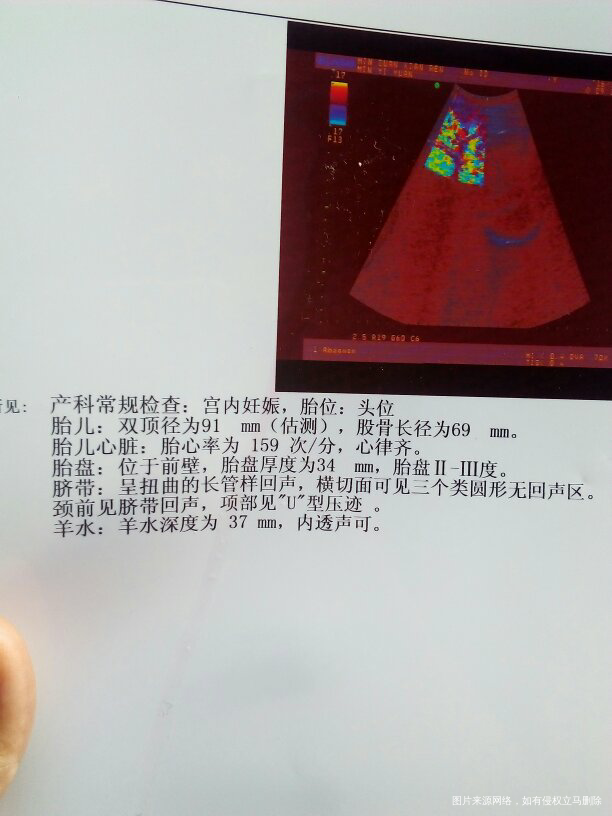 17
17
F13
2.5 R19 G60 C6
见: 产科常规检查: 宫内妊娠, 胎位: 头位
胎儿: 双顶径为91 mm (估测), 股骨长径为69 mm。
胎儿心脏: 胎心率为 159 次/分, 心律齐。
胎盘: 位于前壁, 胎盘厚度为34 mm, 胎盘Ⅱ-Ⅲ度。
脐带: 呈扭曲的长管样回声, 横切面可见三个类圆形无回声区。
颈前见脐带回声, 项部见"U"型压迹 。
羊水: 羊水深度为 37 mm, 内透声可。
图片来源网络，如有侵权立马删除